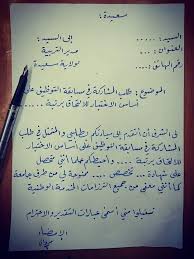 سعيدة :
السيد : .....
إلى السيد :
العنوان : ...
مدير التربية
رقم الهاتف : ...
لولاية سعيدة
الموضوع : طلب المشاركة في مسابقة التوظيف على
أساس الاختبار للالتحاق برتبة ....
لي الشرف أن أتقدم إلى سيادتكم بطلبي والمتمثل في طلب
المشاركة في مسابقة التوظيف على أساس الاختبار
للالتحاق برتبة .... وأحيطكم علما أنني متحصل
على شهادة ... تخصص ... ممنوحة لي من طرف جامعة
كما أنني معفى من جميع التزامات الخدمة الوطنية
تقبلوا مني أسمى عبارات التقدير والاحترام
الإمضاء